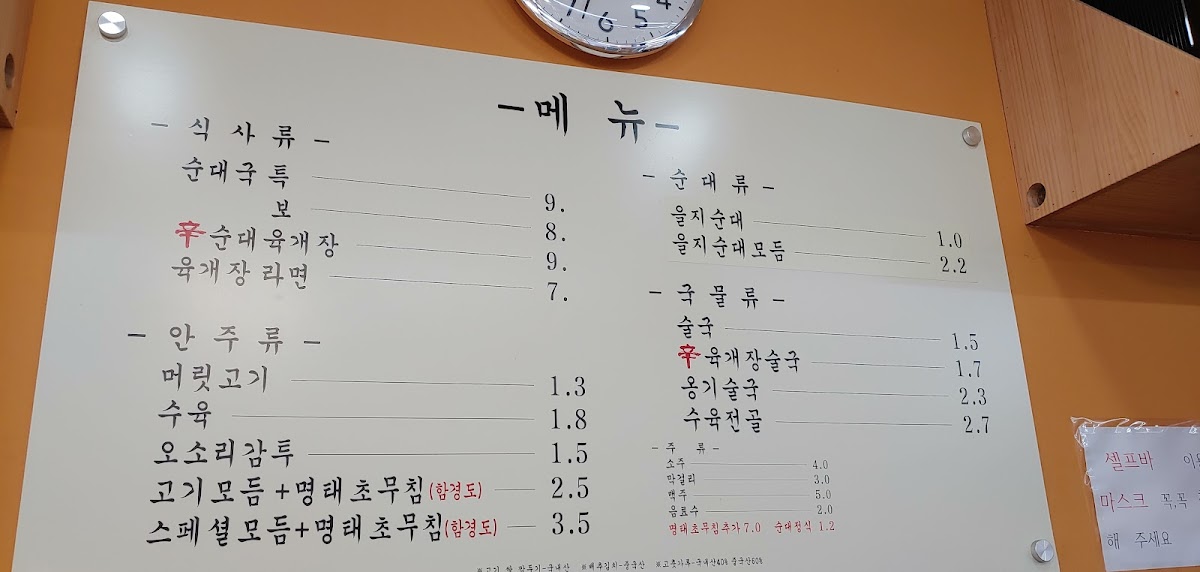 -메 뉴-
- 식 사 류 -
순대국 특 9.
보 8.
辛순대육개장 9.
육개장라면 7.
- 안 주 류 -
머릿고기 1.3
수육 1.8
오소리감투 1.5
고기모듬+명태초무침(함경도) 2.5
스페셜모듬+명태초무침(함경도) 3.5
- 순 대 류 -
을지순대 1.0
을지순대모듬 2.2
- 국 물 류 -
술국 1.5
辛육개장술국 1.7
옹기술국 2.3
수육전골 2.7
- 주 류 -
소주 4.0
막걸리 3.0
맥주 5.0
음료수 2.0
명태초무침추가 7.0 순대정식 1.2
※고기 쌀 깍두기-국내산 ※배추김치-중국산 ※고춧가루-국내산40% 중국산60%
6 5 4
셀프바
마스크 꼭,꼭
해 주세요